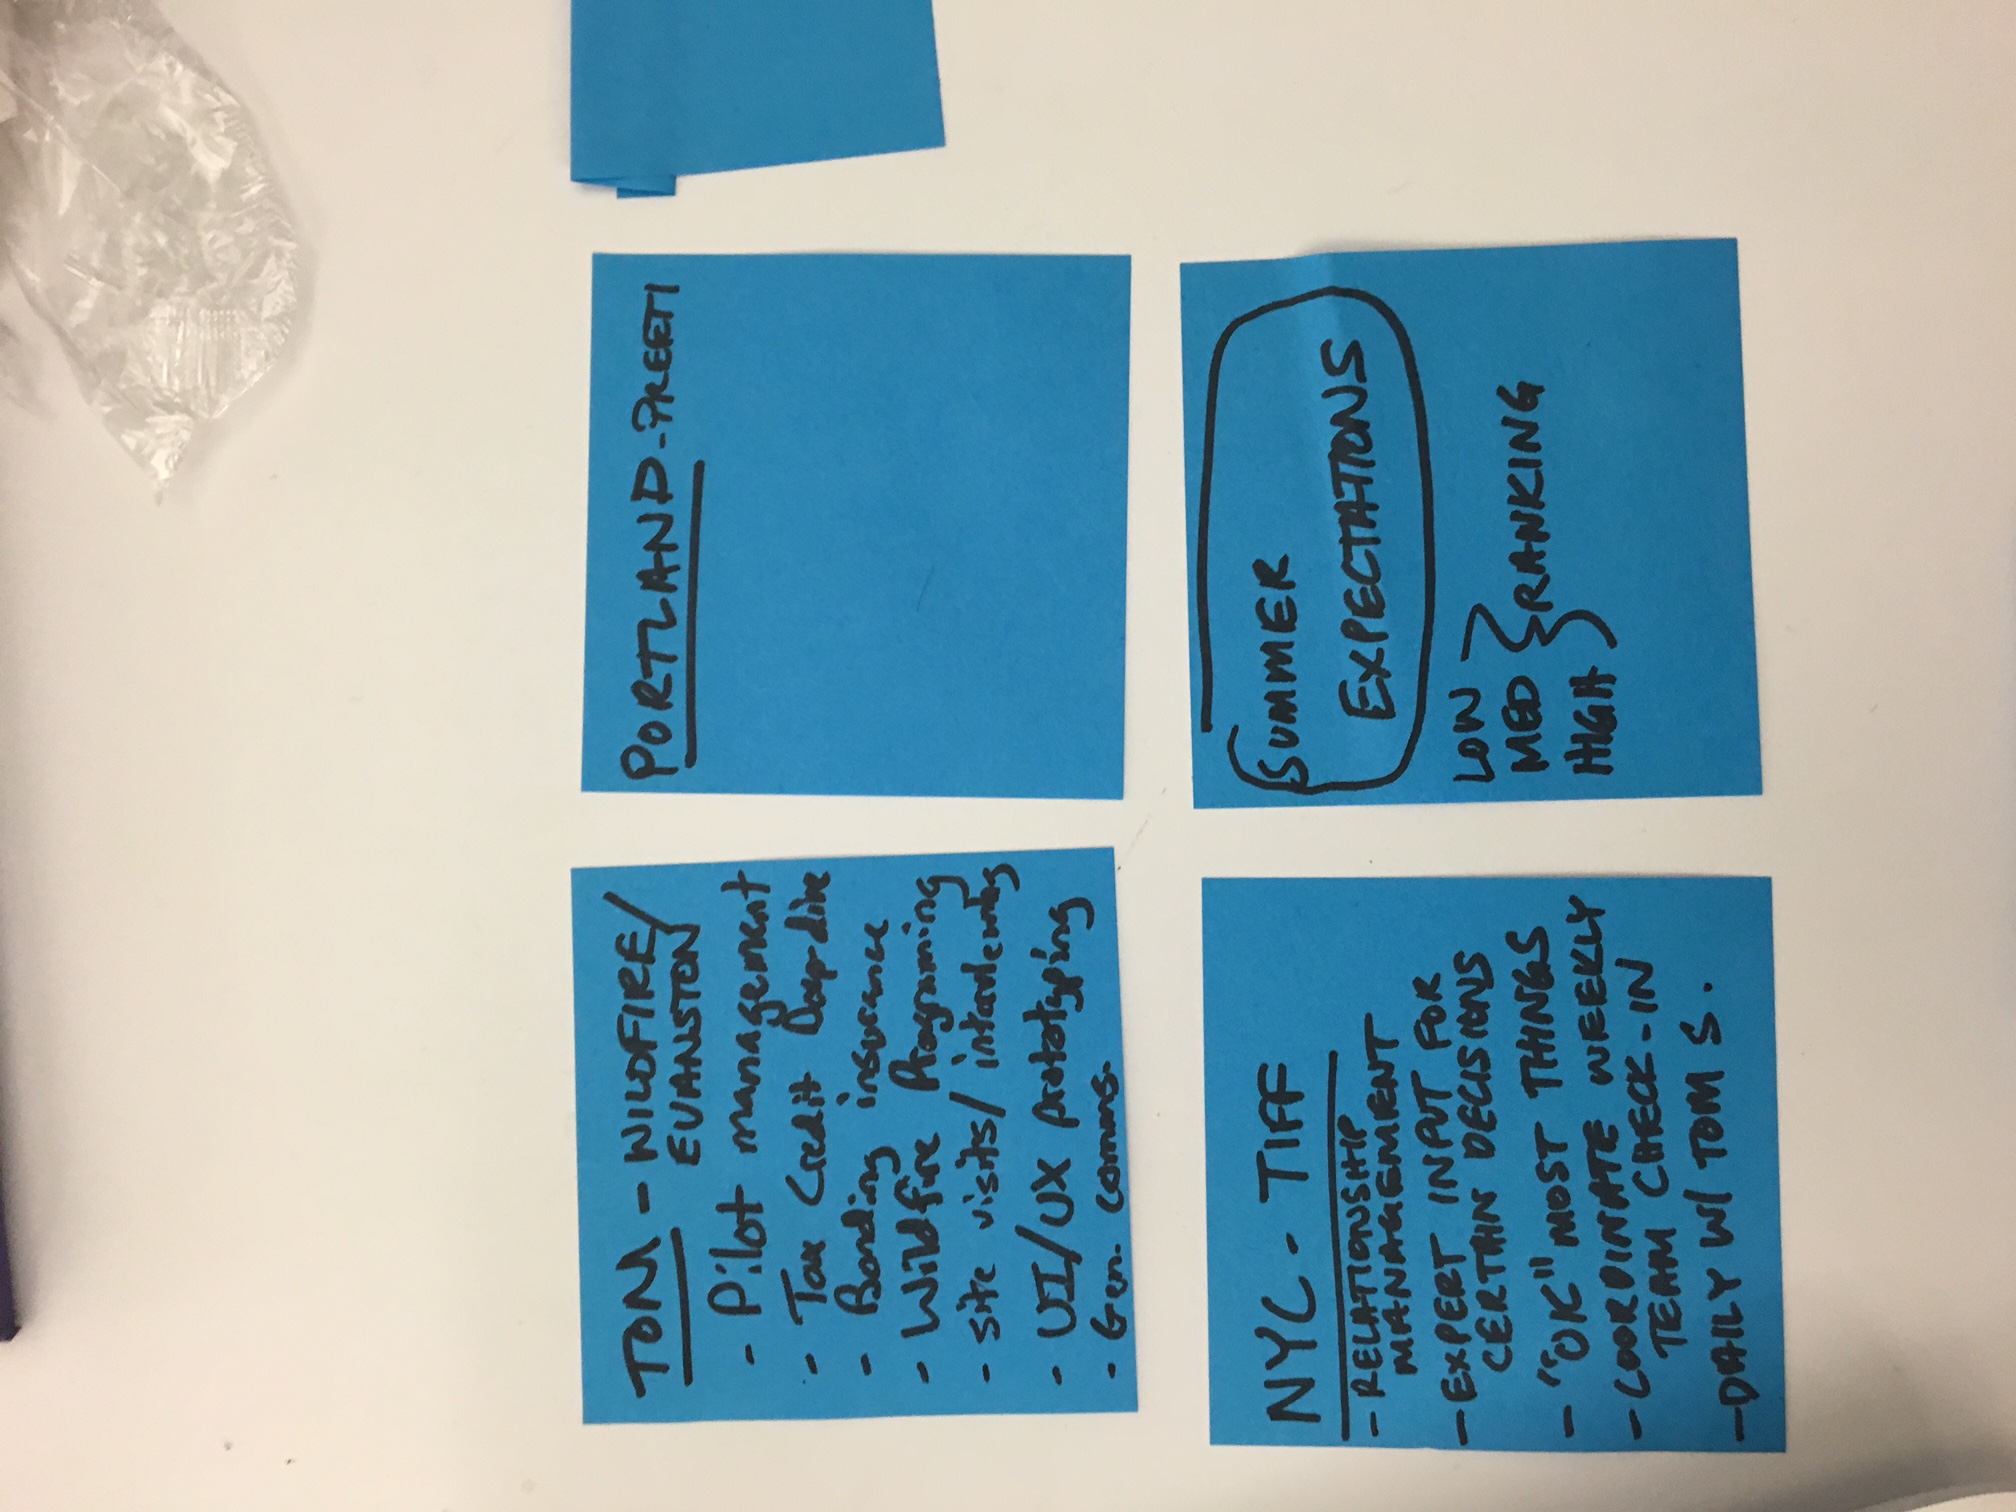 TOM - WILDFIRE/
EVANSTON
- Pilot management
- Tax Credit Deep-dive
- Bonding insurance
- Wildfire Programing
- site visits/ interviewing
- UI/UX prototyping
- Gen. comms.
PORTLAND - PREETI
NYC - TIFF
- RELATIONSHIP
MANAGEMENT
- EXPERT INPUT FOR
CERTAIN DECISIONS
- "OK" MOST THINGS
- COORDINATE WEEKLY
TEAM CHECK-IN
- DAILY W/ TOM S.
SUMMER
EXPECTATIONS
LOW
MED } RANKING
HIGH